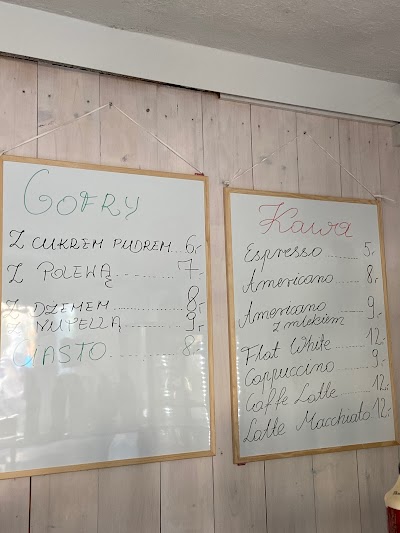 GOFRY
Z CUKREM PUDREM... 6,-
Z POLEWĄ.......... 7,-
Z DŻEMEM........ 8,-
Z NUTELLĄ........ 9,-
CIASTO.......... 8,-
Kawa
Espresso........ 5,-
Americano...... 8,-
Americano
z mlekiem...... 9,-
Flat White...... 12,-
Cappuccino..... 9,-
Caffe Latte..... 12,-
Latte Macchiato 12,-